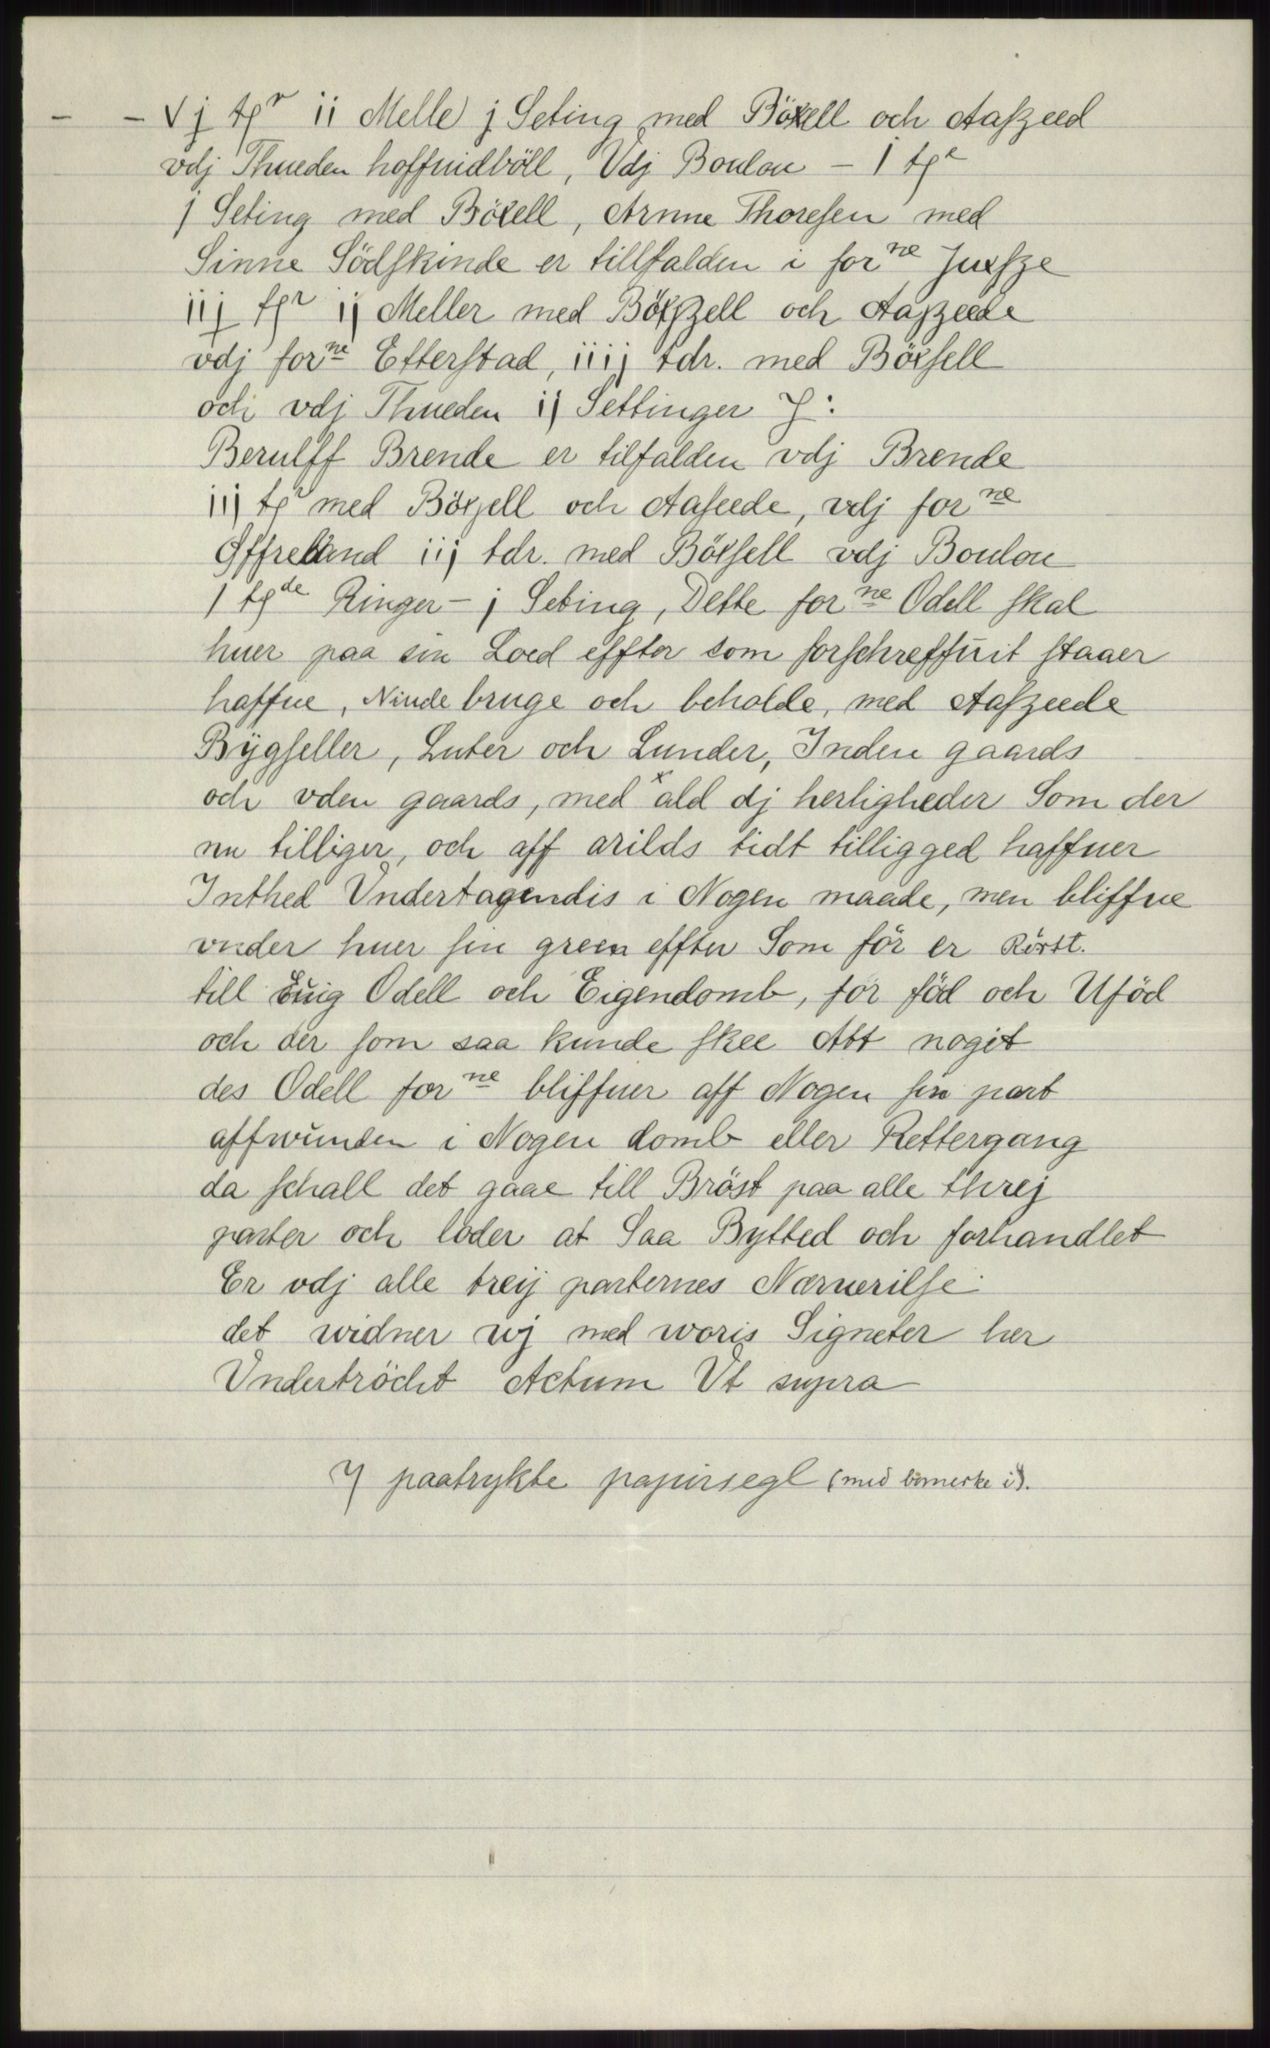 - - vj tpr ii Melle j Seting med Böxell och Aafzeed
vdj Thueden hoffuidböll, Vdj Boulou - 1 tpe
j Seting med Böxell, Arnne Thoresen med
Sinne Södskinde er tillfalden i forne Juxsze
iij tpr ij Meller med Böxzell och Aaszeede
vdj forne Efterstad, iiij tdr. med Böxsell
och vdj Thueden ij Settinger
Berulff Brende er tilfalden vdj Brende
iij tpr med Böxzell och Aaseede, vdj forne
Øffreland iij tdr. med Böxsell vdj Boulou
1 tpde Ringer - j Seting, Dette forne Odell skal
huer paa sin Loed effter som forschreffuit staaer
haffue, Niude bruge och beholde, med Aafzeede
Bÿgseller, Luter och Lunder, Inden gaards
och vden gaards, med x ald dj herligheder Som der
nu tilliger, och aff arilds tidt tilligged haffuer
Inthed Undertagendis i Nogen maade, men bliffue
vnder huer sin green effter Som för er Rörtt.
till Euig Odell och Eigendomb, for föd och Uföd
och der som saa kunde skee Att nogit
des Odell forne bliffuer aff Nogen sin part
affwunden i Nogen domb eller Rettergang
da schall det gaae till Bröst paa alle threj
parter och loder at Saa Bytted och forhandlet
Er vdj alle treij parternes Nærwerilse
det widner wj med woris Signeter her
Undertröcht Actum Ut supra
7 paatrykte papirsegl (med bomerke i).